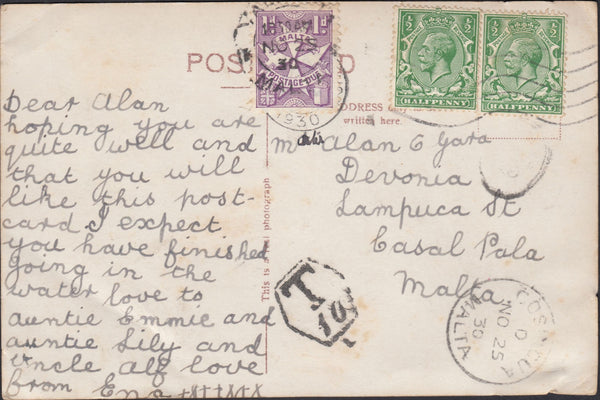 POST
D
1D
MALTA
POSTAGE DUE
1D
NO 25
30
MAL
1930
½
½
HALFPENNY
½
½
HALFPENNY
ADDRESS
written here.
This is a real photograph
Dear Alan
hoping you are
quite well and
that you will
like this post-
card. I expect
you have finished
going in the
water love to
auntie Emmie and
auntie Lily and
Uncle alf love
from Ena
Alan O Gara
Devonia
Lampuca St
Casal Pala
Malta
T
10
COSPICUA
NO 25
30
MALTA